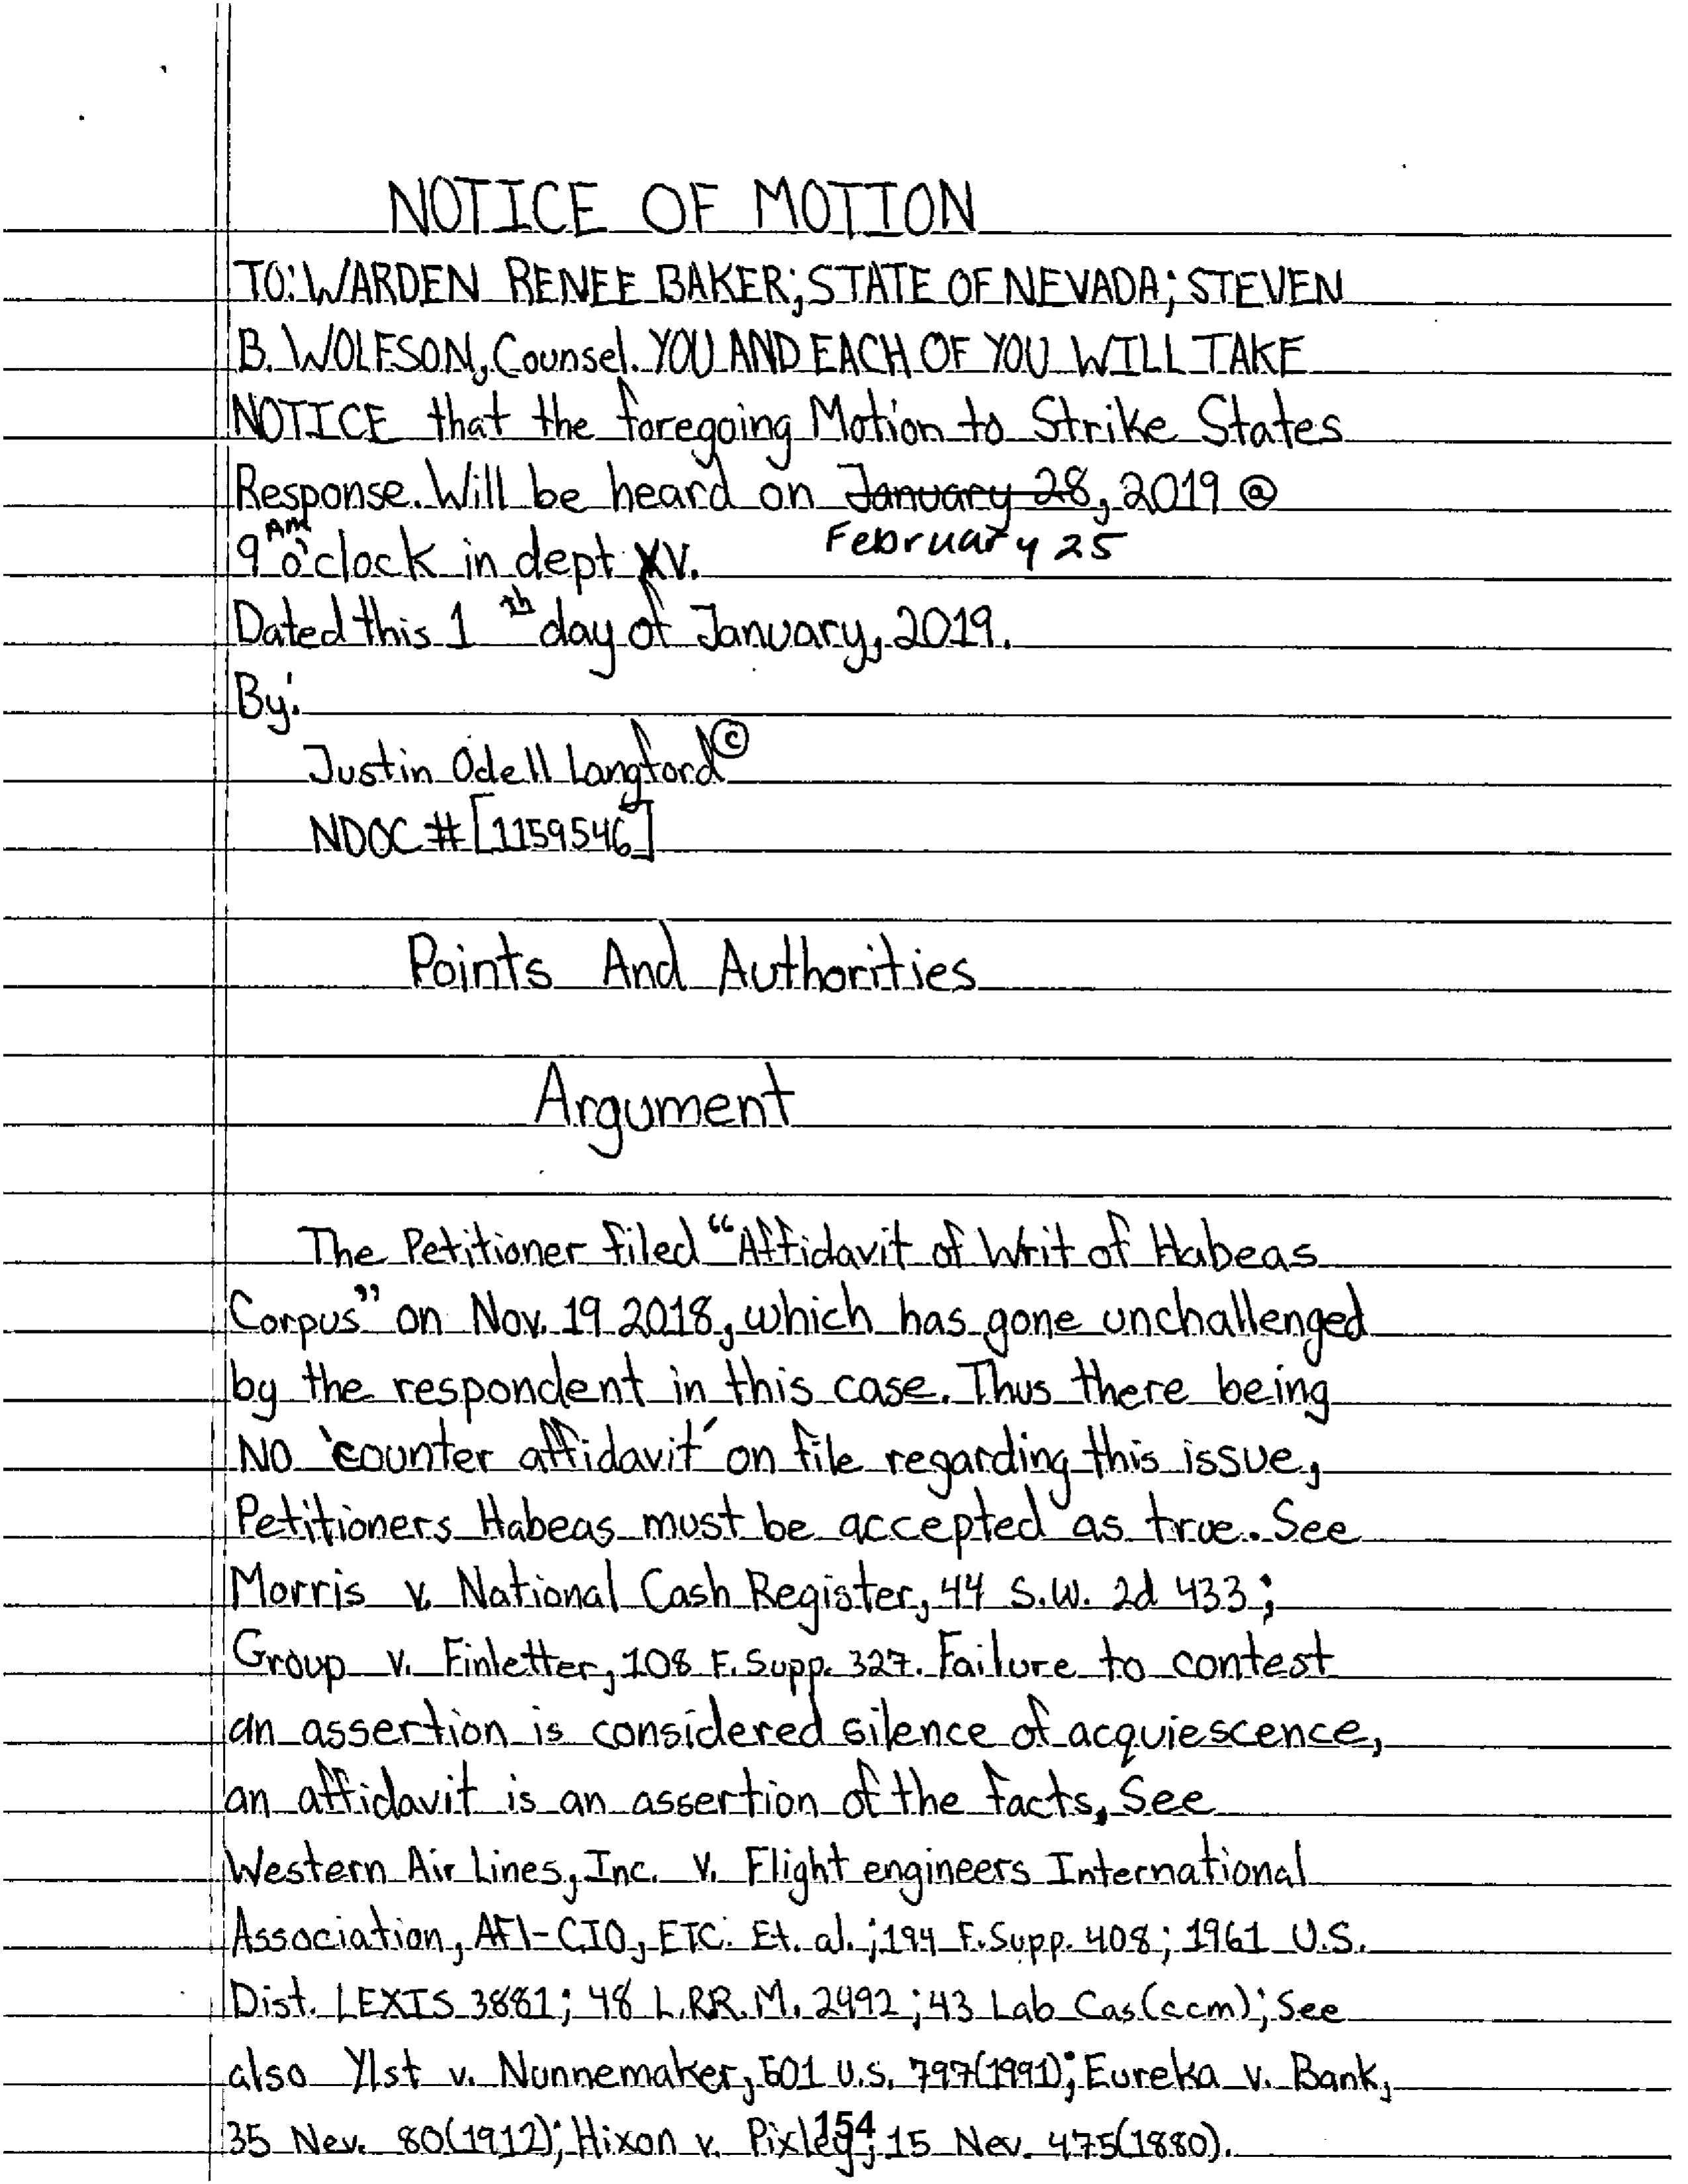 NOTICE OF MOTION
TO: WARDEN RENEE BAKER; STATE OF NEVADA; STEVEN
B. WOLFSON, Counsel. YOU AND EACH OF YOU WILL TAKE
NOTICE that the foregoing Motion to Strike States
Response. Will be heard on January 28, 2019 @
February 25
9 AM o'clock in dept XV.
Dated this 1 th day of January, 2019.
By:
Justin Odell Langford ©
NDOC # [1159546]
Points And Authorities
Argument
The Petitioner filed "Affidavit of Writ of Habeas
Corpus" on Nov. 19 2018, which has gone unchallenged
by the respondent in this case. Thus there being
NO 'counter affidavit' on file regarding this issue,
Petitioners Habeas must be accepted as true. See
Morris v. National Cash Register, 44 S.W. 2d 433;
Group v. Finletter, 108 F. Supp. 327. Failure to contest
an assertion is considered silence of acquiescence,
an affidavit is an assertion of the facts, See
Western Air Lines, Inc. v. Flight engineers International
Association, AFl-CIO, ETC. Et. al.; 194 F. Supp. 408; 1961 U.S.
Dist. LEXIS 3881; 48 L.RR.M. 2492; 43 Lab Cas (ccm); See
also Ylst v. Nunnemaker, 501 U.S. 797 (1991); Eureka v. Bank,
35 Nev. 80 (1912); Hixon v. Pixley, 15 Nev. 475 (1880).
154